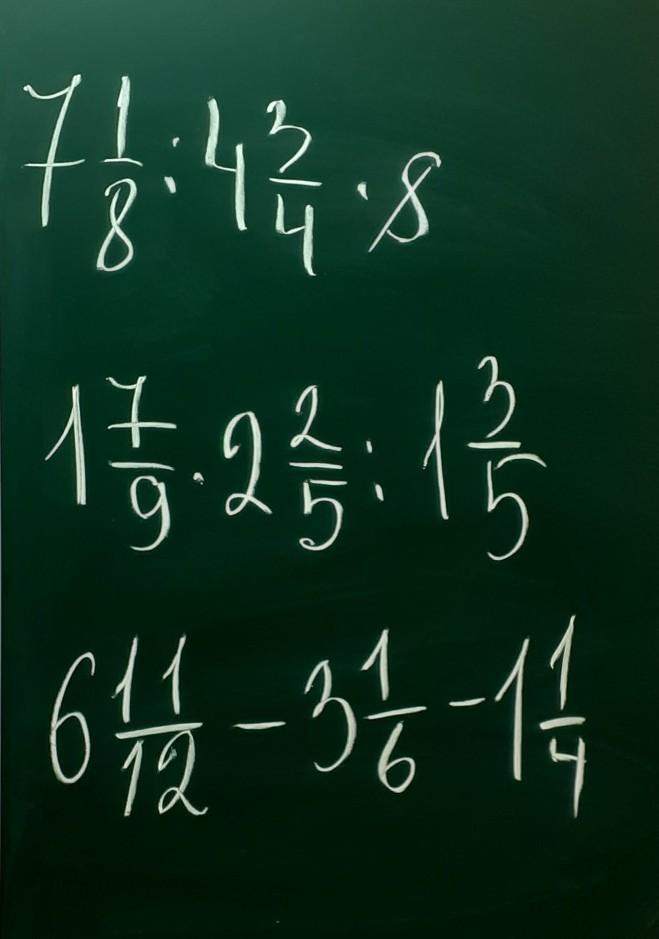 7 1/8 : 4 3/4 · 8
1 7/9 · 2 2/5 : 1 3/5
6 11/12 - 3 1/6 - 1 1/4